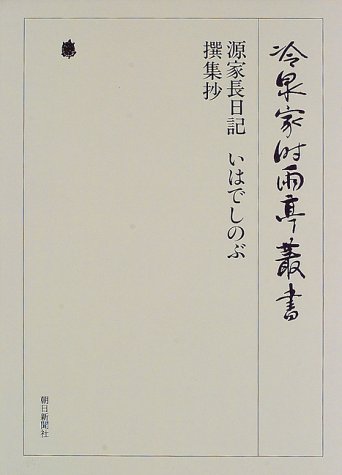 冷泉家時雨亭叢書
源家長日記 いはでしのぶ
撰集抄
朝日新聞社